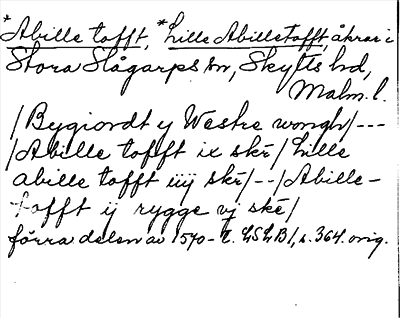 *Abille tofft, *Lille Abilletofft, åkrar i
Stora Slågarps sn, Skytts hd,
Malm. l.
/Bygiordt y Westre wongh/ ---
/Abille tofft ix skē/ Lille
abille tofft iiij skē/--/Abille-
tofft ij rygge vj skē/
förra delen av 1570-t. LSLB1, s. 364. orig.